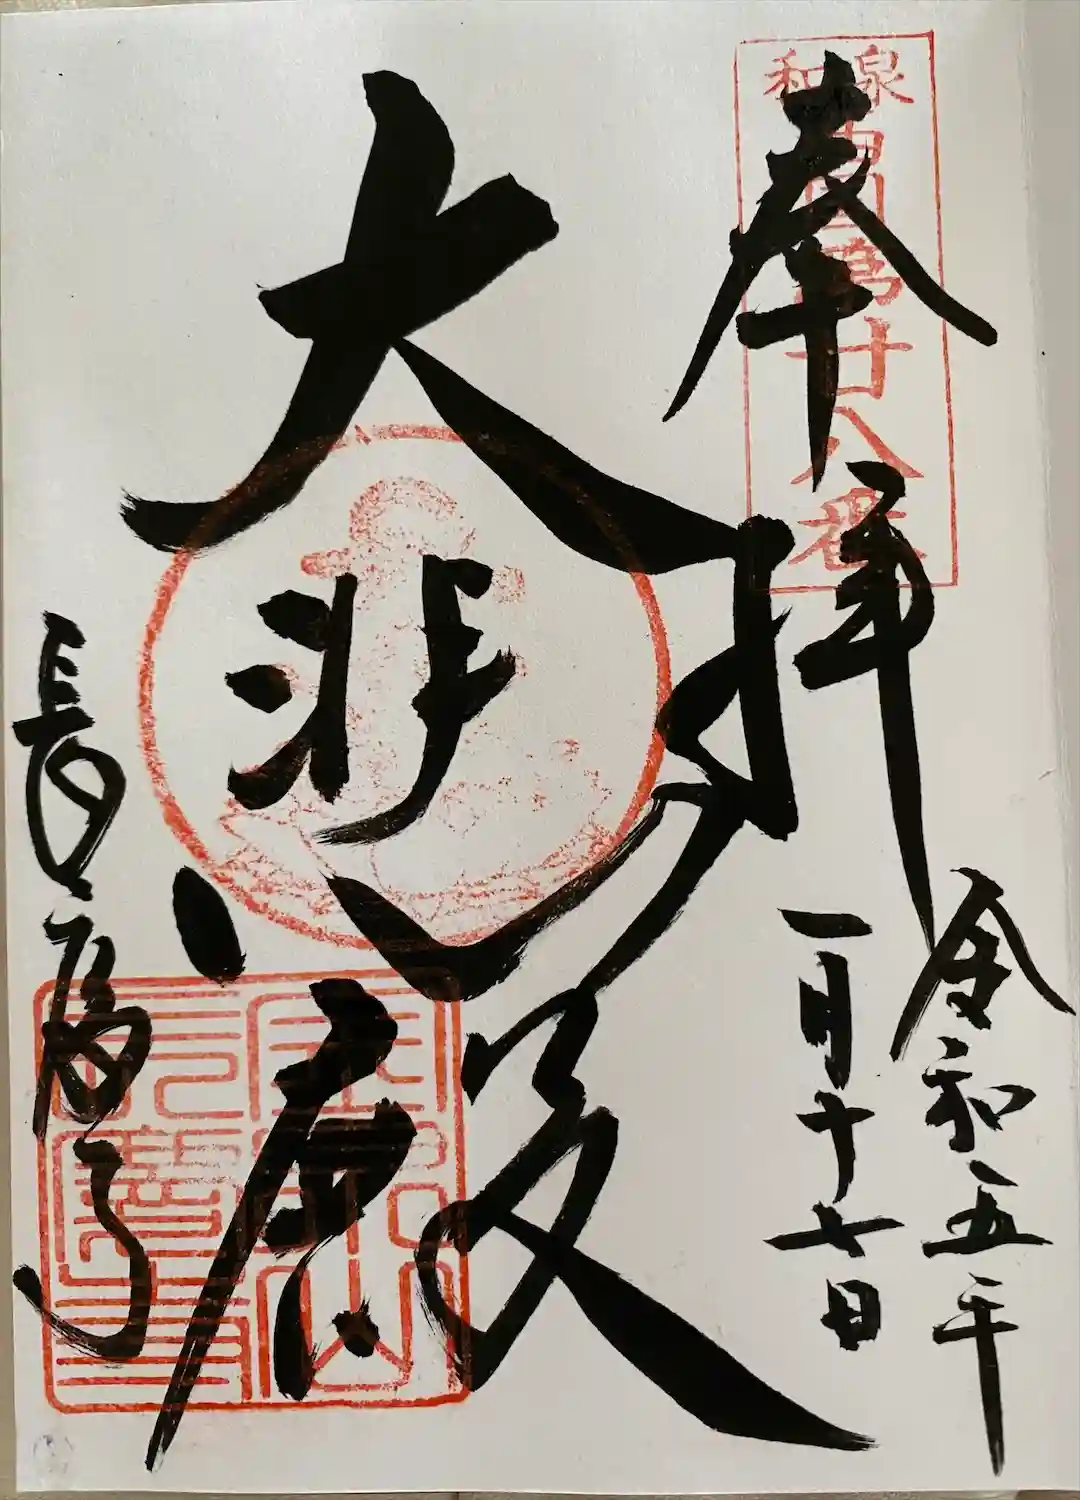 奉拝
和泉西国第廿八番
令和五年
一月十七日
大悲殿
長慶寺